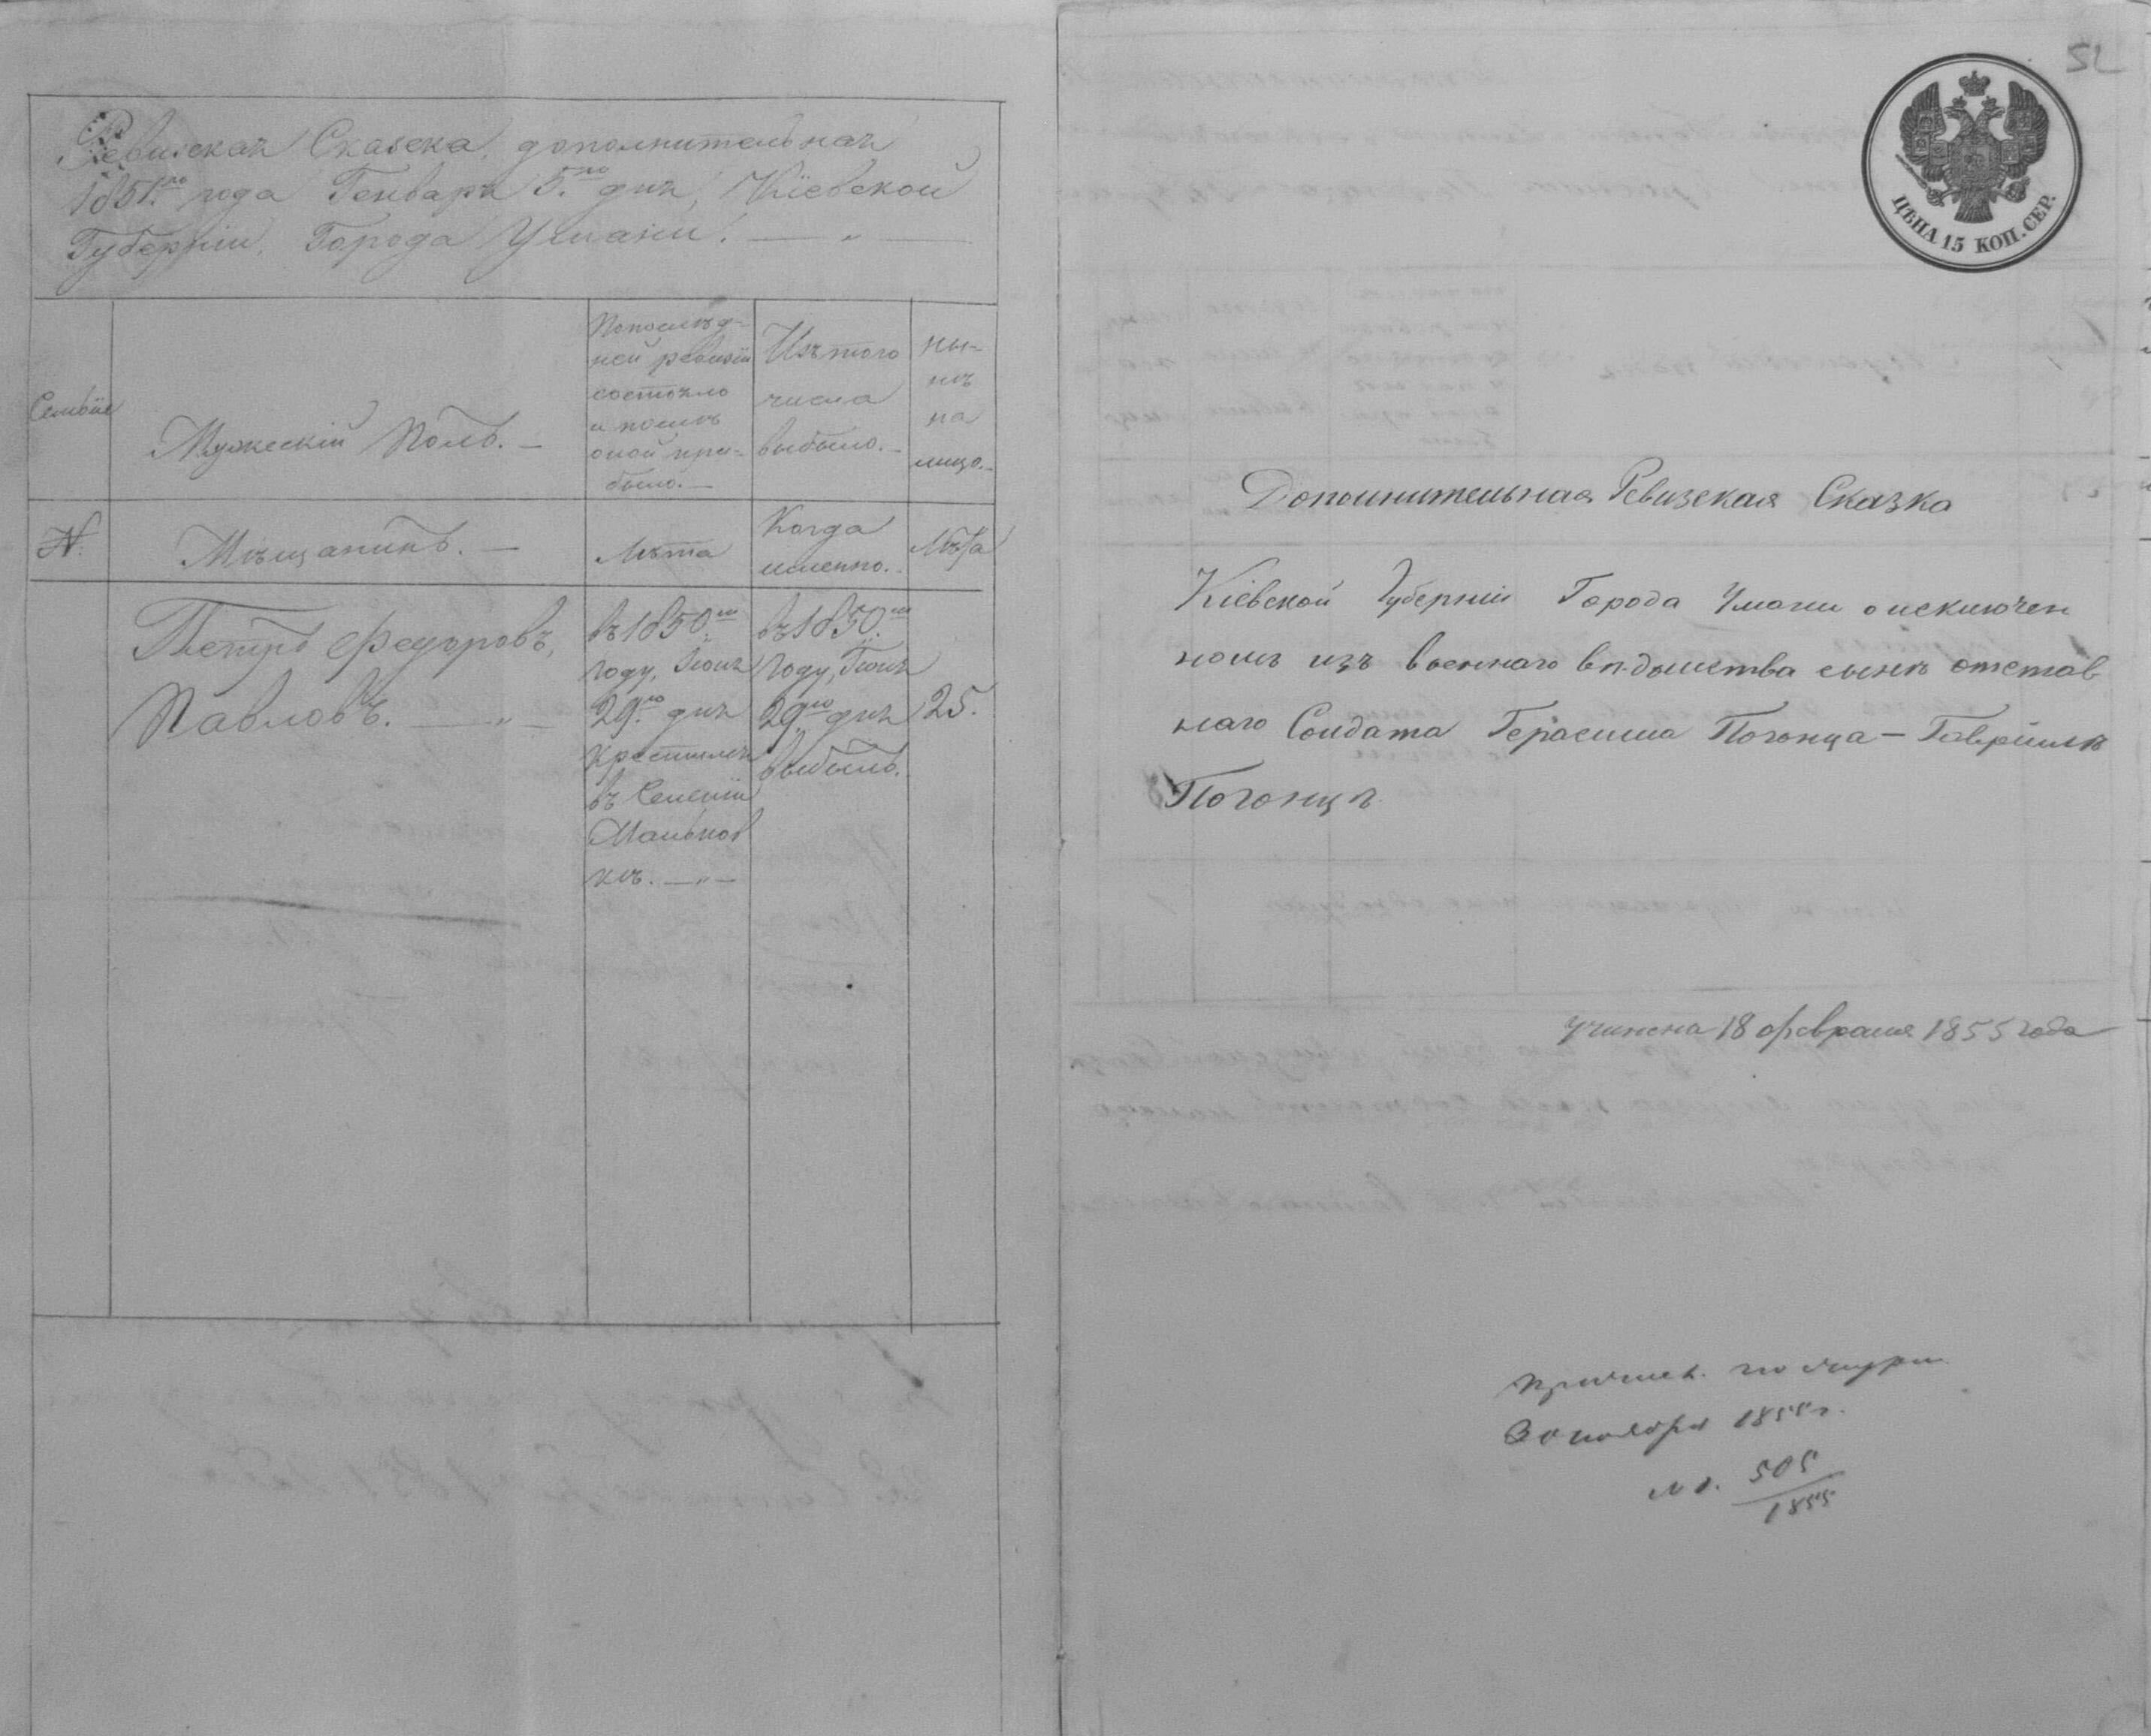 Ревизская Сказска, дополнительная
1851.го года Генваря 5.го дня, Кіевской
Губерніи, Города Умани.
Семьи
Мужескій Полъ.
Попослѣд-
ней ревизіи
состояло
и послѣ
оной при-
было.
Изъ того
числа
выбыло.
ны-
нѣ
на
лицо.
№
Мѣщанинъ.
Лѣта
Когда
именно.
Лѣта
Петръ Федоровъ,
Павловъ.
въ 1850.м
году, Іюня
29.го дня
въ
Маньков
кѣ.
въ 1850.м
году, Іюня
29.го дня
выбылъ.
25.
52
ЦѢНА 15 КОП. СЕР.
Дополнительная Ревизская Сказка
Кіевской Губерніи Города Умани о исключен
номъ изъ военнаго вѣдомства сынѣ отстав
наго Солдата Герасима Погонца — Гаврiилѣ
Погонцѣ
Учинена 18 февраля 1855 года
30 ноября 1855 г.
№ 505
1855